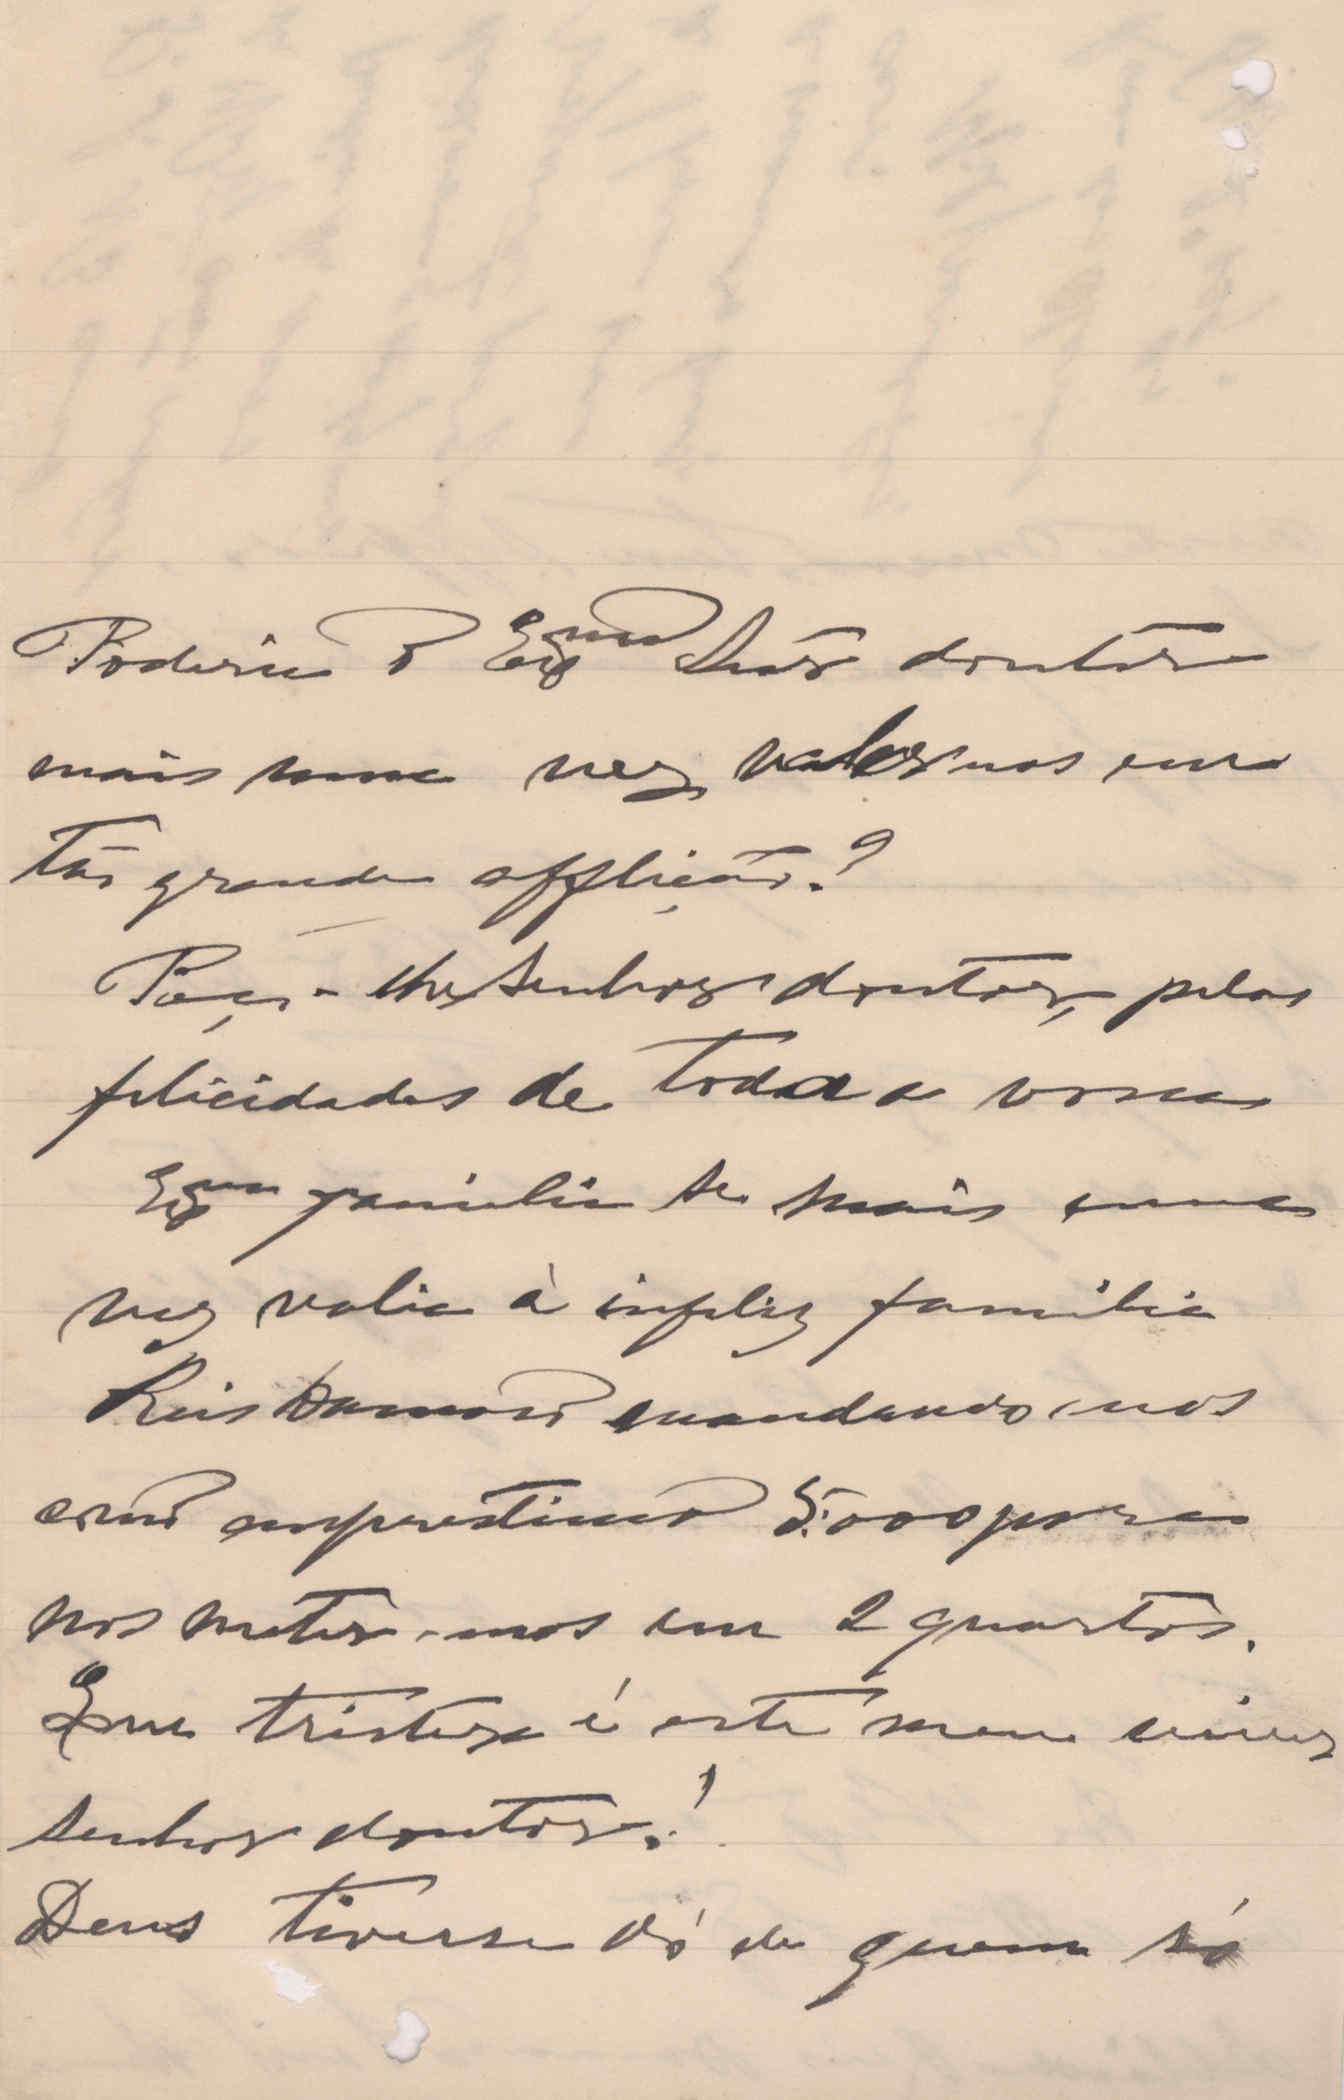 Poderia o Exmo Snr doutor
mais uma vez valer nos em
tão grande afflição?
Peço-lhe senhor doutor, pelas
felicidades de toda a vossa
Exma familia se mais uma
vez valia à infeliz familia
Reis Damaso mandando-nos
como emprestimo 5:000 para
nos meter-mos em 2 quartos.
Que tristeza é este meu viver
senhor doutor!
Deus tivesse dó de quem só